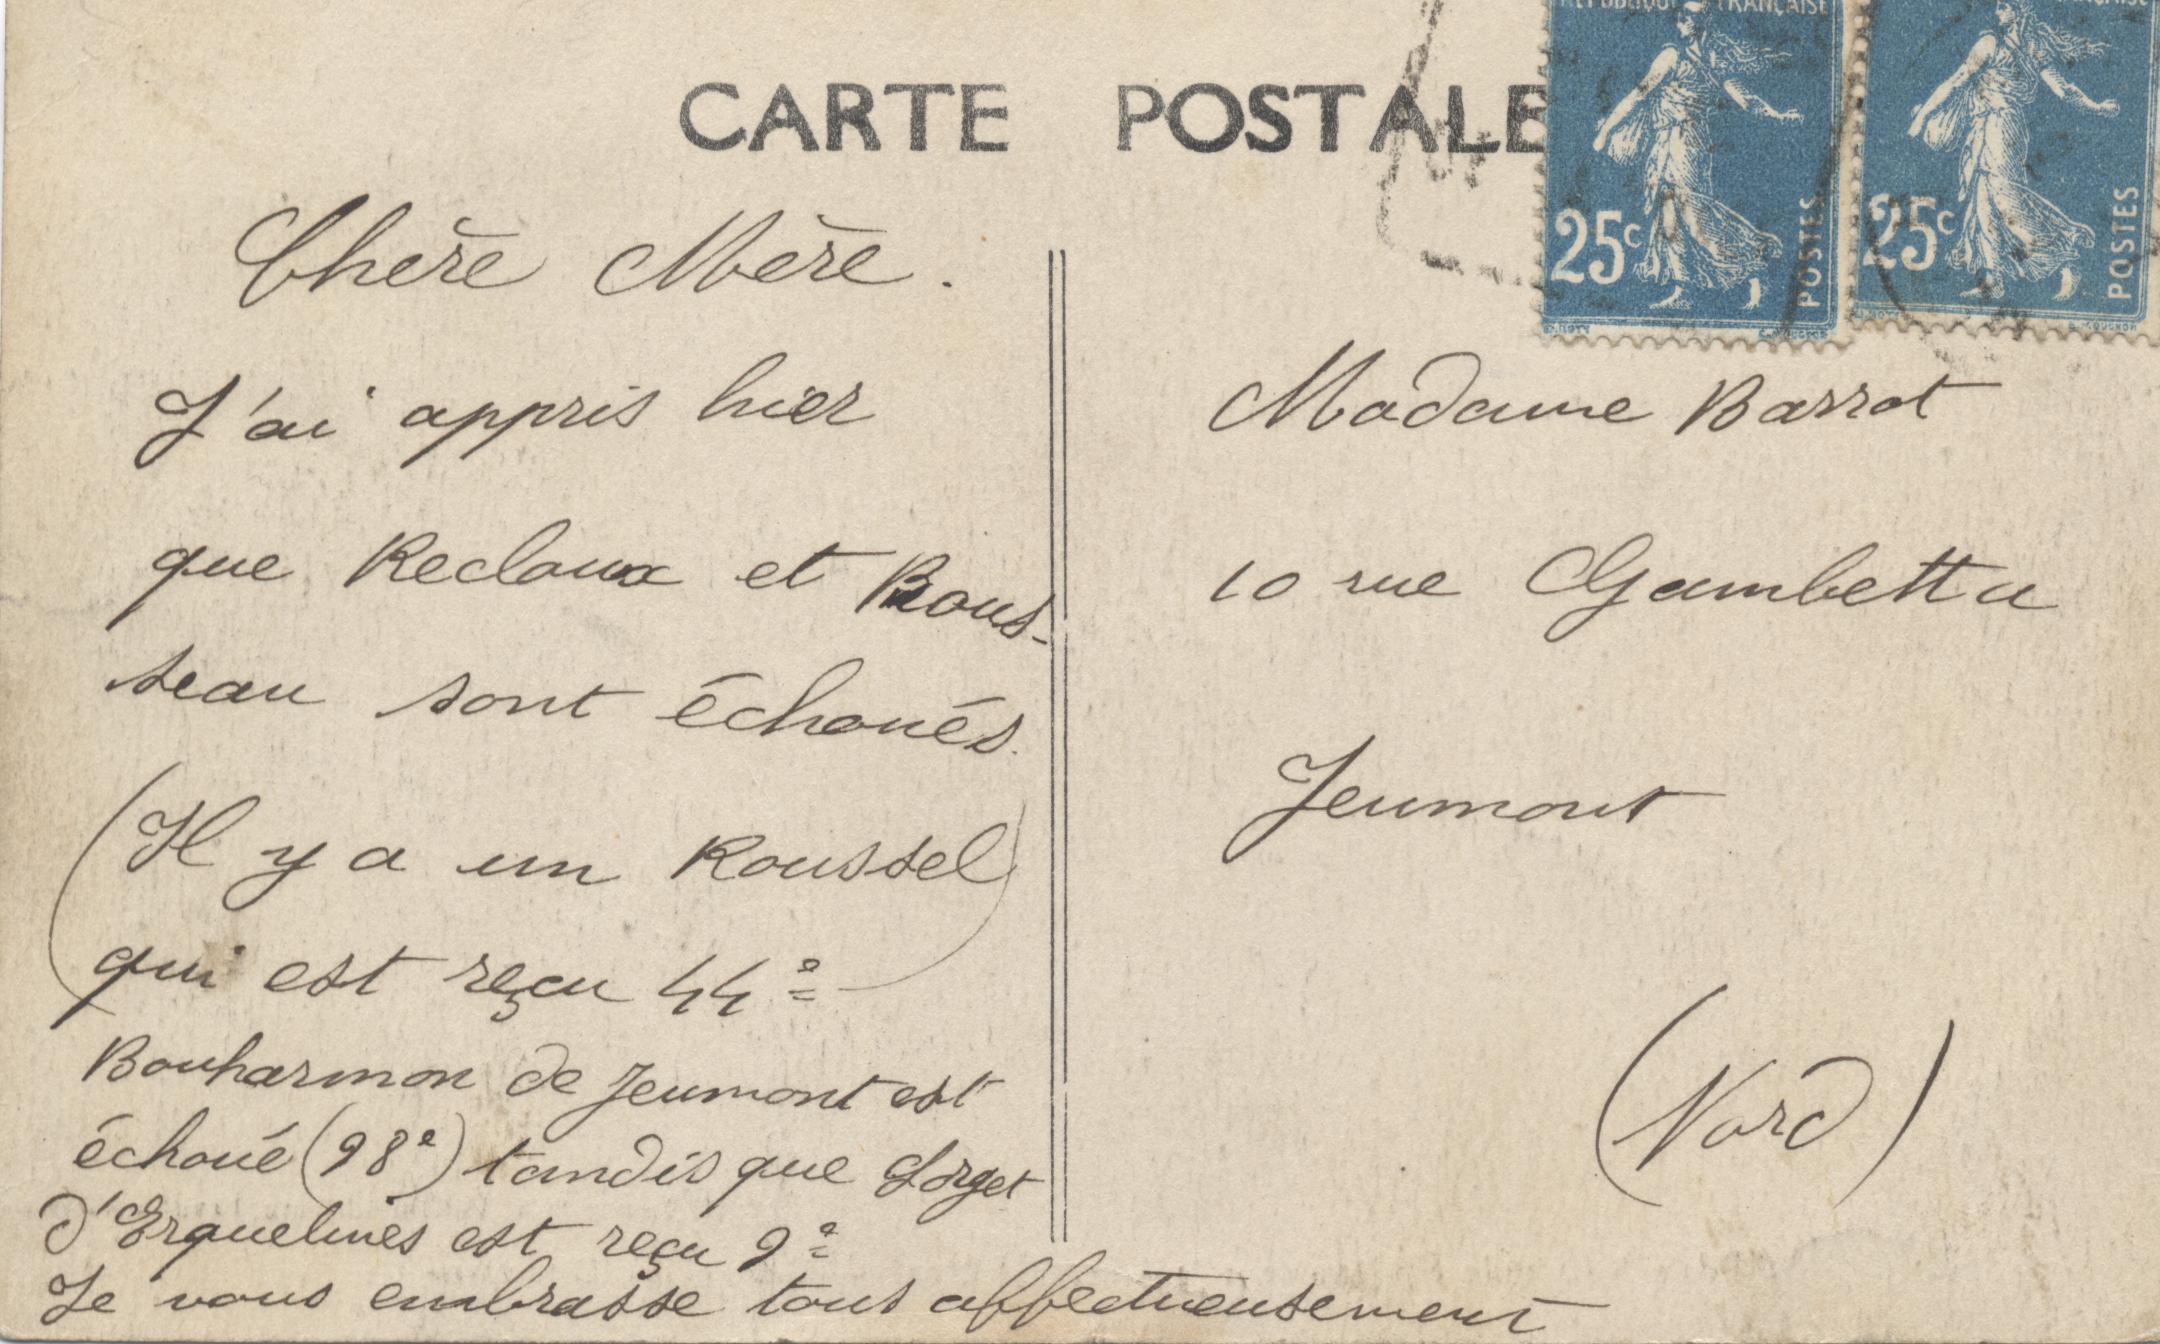 CARTE POSTALE
RÉPUBLIQUE FRANÇAISE
25c
POSTES
25c
POSTES
Chère Mère.
J'ai appris hier
que Recloux et Rous-
seau sont échoués.
(Il y a un Roussel
qui est reçu 44e)
Bouharmon de Jeumont est
échoué (98e) tandis que Lorget
d'Erquelines est reçu 9e
Je vous embrasse tous affectueusement
Madame Barrot
10 rue Gambetta
Jeumont
(Nord)